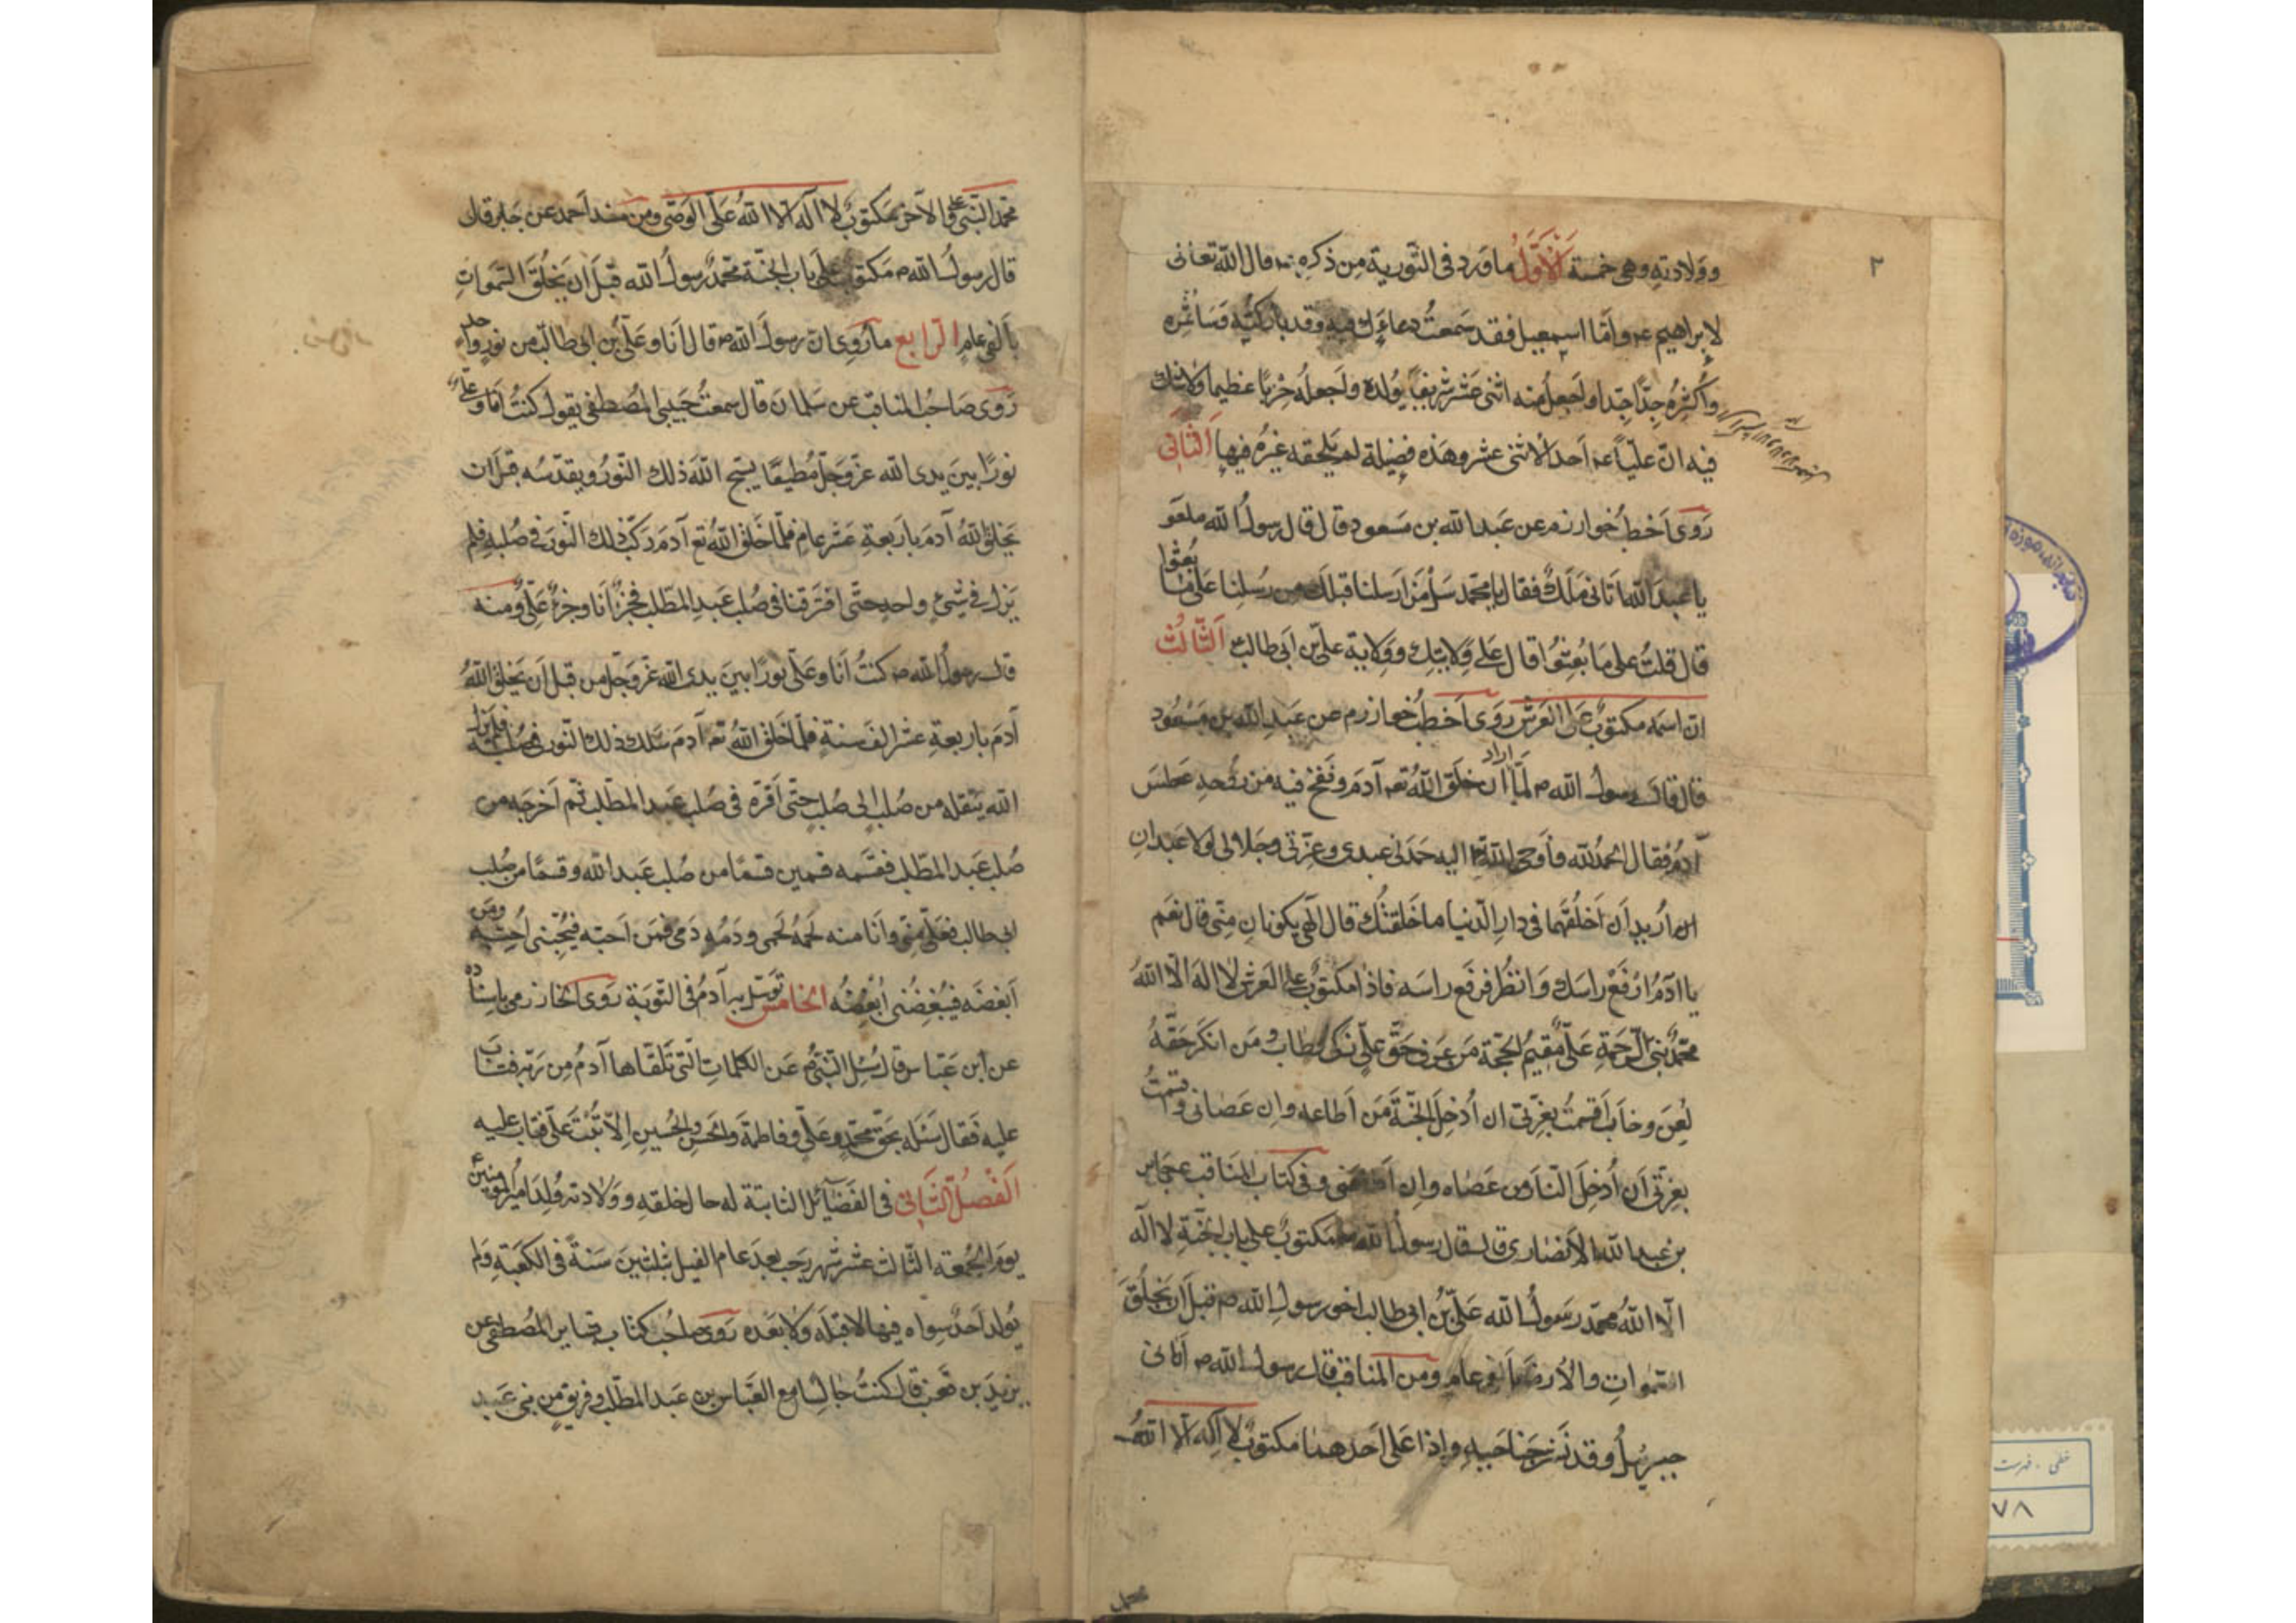 ٢
وولادته وهى خمسة الأوّل ما ورد فى التورية من ذكره قال الله تعالى
لابراهيم ع واما اسمعيل فقد سمعت دعاءك فيه وقد باركته وساثمره
واكثره جدّا جدّا واجعل منه اثنى عشر شريفا يولد واجعله حزبا عظيما ولا شك
فيه انّ عليّا ع احد الاثنى عشر وهذه فضيلة لم يلحقه غيره فيها الثانى
روى اخطب خوارزم عن عبد الله بن مسعود قال قال رسول الله
يا عبد الله اتانى ملك فقال يا محمد سل من ارسلنا قبلك من رسلنا على ما بعثوا
قال قلت على ما بعثوا قال على ولايتك وولاية علىّ بن ابى طالب الثالث
انّ اسمه مكتوب على العرش روى اخطب خوارزم عن عبد الله بن مسعود
قال قال رسول الله ص لمّا اراد ان خلق الله تع آدم ونفخ فيه من روحه عطس
آدم فقال الحمد لله فأوحى الله اليه حمدنى عبدى وعزّتى وجلالى لولا عبدان
اريد ان اخلقهما فى دار الدنيا ما خلقتك قال الهى يكونان منّى قال نعم
يا ادم ارفع راسك وانظر فرفع راسه فاذا مكتوب على العرش لا اله الّا الله
محمّد نبىّ الرحمة علىّ مقيم الحجّة من عرف حقّ علىّ زكى وطاب ومن انكر حقّه
لعن وخاب اقسمت بعزّتى ان ادخل الجنّة من اطاعه وان عصانى واقسمت
بعزّتى ان ادخل النار من عصاه وان اطاعنى وفى كتاب المناقب عن جابر
بن عبد الله الانصارى قال قال رسول الله مكتوب على باب الجنّة لا اله
الّا الله محمّد رسول الله علىّ بن ابى طالب اخو رسول الله ص قبل ان يخلق
السّموات والارض بالفى عام ومن المناقب قال رسول الله ص اتانى
جبرئيل وقد نشر جناحيه واذا على احدهما مكتوب لا اله الّا الله
محمد
محمّد النّبى وعلى الآخر مكتوب لا اله الّا الله علىّ الوصى ومن مسند احمد عن جابر قال
قال رسول الله ص مكتوب على باب الجنّة محمّد رسول الله قبل ان يخلق السّموات
بالفى عام الرابع ما روى انّ رسول الله ص قال انا وعلىّ بن ابى طالب من نور واحد
روى صاحب المناقب عن سلمان قال سمعت حبيبى المصطفى يقول كنت انا وعلىّ
نورا بين يدى الله عزّ وجلّ مطيعا يسبّح الله ذلك النّور ويقدّسه قبل ان
يخلق الله آدم باربعة عشر عام فلمّا خلق الله تع آدم ركّب ذلك النّور فى صلبه فلم
يزل فى شىء واحد حتّى افترقنا فى صلب عبد المطّلب فجزء انا وجزء علىّ ومنه
قال رسول الله ص كنت انا وعلىّ نورا بين يدى الله عزّ وجلّ من قبل ان يخلق الله
آدم باربعة عشر الف سنة فلمّا خلق الله تع آدم سلك ذلك النّور فى صلبه فلم يزل
الله ينقله من صلب الى صلب حتّى اقرّه فى صلب عبد المطّلب ثم اخرجه من
صلب عبد المطّلب فقسّمه قسمين قسما من صلب عبد الله وقسما من صلب
ابى طالب فعلىّ منّى وانا منه لحمه لحمى ودمه دمى فمن احبّه فيحبّنى احبّه ومن
ابغضه فيبغضنى ابغضه الخامس توسّل به آدم فى التّوبة روى الخوارزمى باسناده
عن ابن عبّاس قال سئل النبىّ عن الكلمات الّتى تلقّاها آدم من ربّه فتاب
عليه فقال سئله بحقّ محمّد وعلىّ وفاطمة والحسن والحسين الّا تبت علىّ فتاب عليه
الفصل الثانى فى الفضائل الثابتة له حال خلقه وولادته ولد امير المؤمنين
يوم الجمعة الثالث عشر شهر رجب بعد عام الفيل بثلثين سنة فى الكعبة ولم
يولد احد سواه فيها لا قبله ولا بعده روى صاحب كتاب بشاير المصطفى عن
يزيد بن قعنب قال كنت جالسا مع العبّاس بن عبد المطّلب وفريق من بنى عبد
خطى . فهرست
٧٨